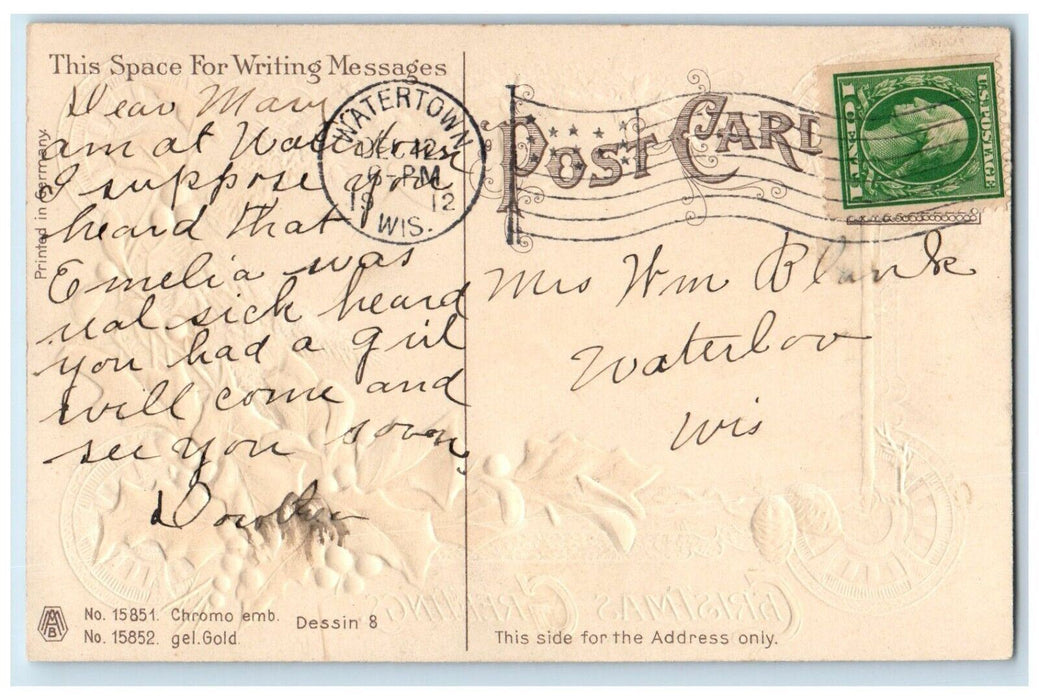 This Space For Writing Messages
Dear Mary
am at Watertown
I suppose you
heard that
Emelia was
real sick heard
you had a girl
will come and
see you soon,
Printed in Germany
WATERTOWN
DEC 12
PM
19 12
WIS.
POST CARD
U.S. POSTAGE
1 CENT 1
Mrs Wm Blank
Waterloo
Wis
MAB
No. 15851. Chromo emb.
No. 15852. gel. Gold.
Dessin 8
CHRISTMAS GREETINGS
This side for the Address only.